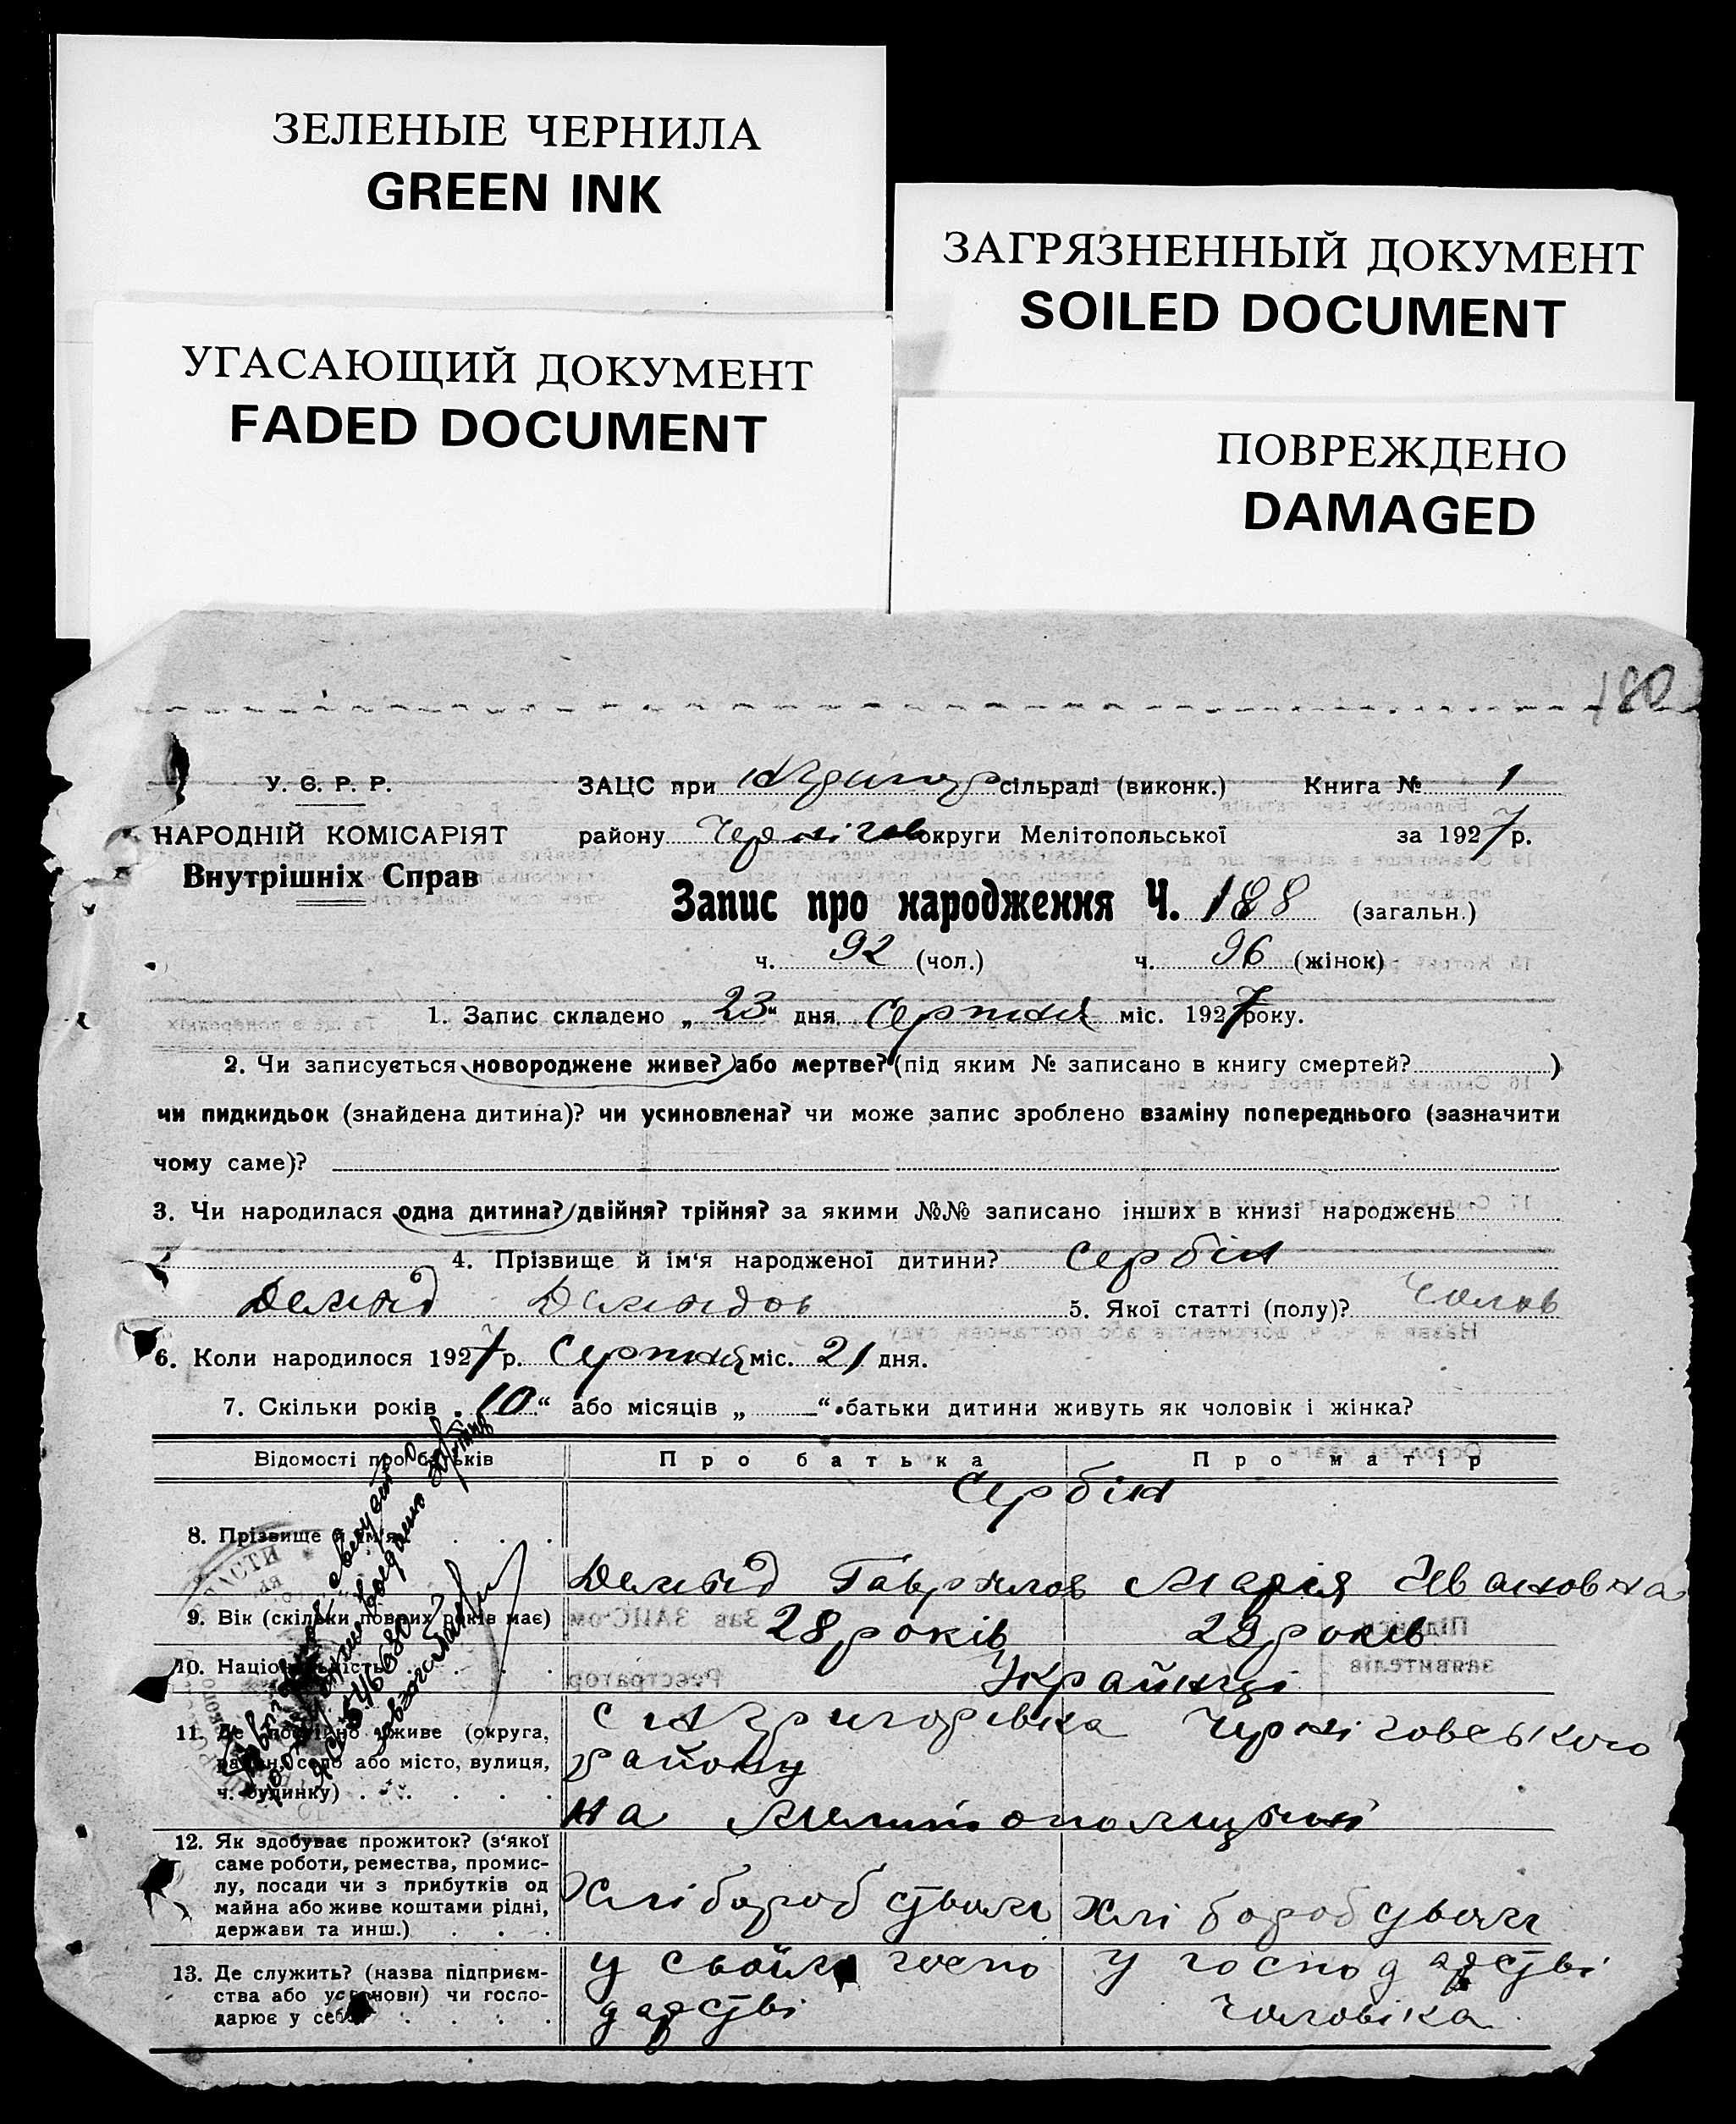 ЗЕЛЕНЫЕ ЧЕРНИЛА
GREEN INK
ЗАГРЯЗНЕННЫЙ ДОКУМЕНТ
SOILED DOCUMENT
УГАСАЮЩИЙ ДОКУМЕНТ
FADED DOCUMENT
ПОВРЕЖДЕНО
DAMAGED
180
У. С. Р. Р.
НАРОДНІЙ КОМІСАРІЯТ
Внутрішніх Справ
ЗАЦС при сільраді (виконк.) Книга № 1
району Чернігов округи Мелітопольської за 1927 р.
Запис про народження Ч. 188 (загальн.)
ч. 92 (чол.) ч. 96 (жінок)
1. Запис складено „23“ дня Серпня міс. 1927 року.
2. Чи записується новороджене живе? або мертве? (під яким № записано в книгу смертей? )
чи пидкидьок (знайдена дитина)? чи усиновлена? чи може запис зроблено взаміну попереднього (зазначити
чому саме)?
3. Чи народилася одна дитина? двійня? трійня? за якими №№ записано інших в книзі народжень
4. Прізвище й ім‘я народженої дитини? Сербін
Демид Демидов 5. Якої статті (полу)? Чолов
6. Коли народилося 1927 р. Серпня міс. 21 дня.
7. Скільки років „10“ або місяців „ “ батьки дитини живуть як чоловік і жінка?
Відомості про батьків Про батька Про матір
Сербін
8. Прізвище й ім‘я
Демид Гаврилов Марія Ивановна
9. Вік (скільки повних років має) 28 років 29 років
10. Національність Українці
11. Де постійно живе (округа, район, село або місто, вулиця, ч. будинку)
с Н Григорівка Черніговського
району
на Мелитопольщині
12. Як здобуває прожиток? (з‘якої
саме роботи, ремества, промис-
лу, посади чи з прибутків од
майна або живе коштами рідні,
держави та инш.)
Хліборобством Хліборобством
13. Де служить? (назва підприєм-
ства або установи) чи госпо-
дарює у себе
у своїм госпо
дарстві
у господарстві
чоловіка